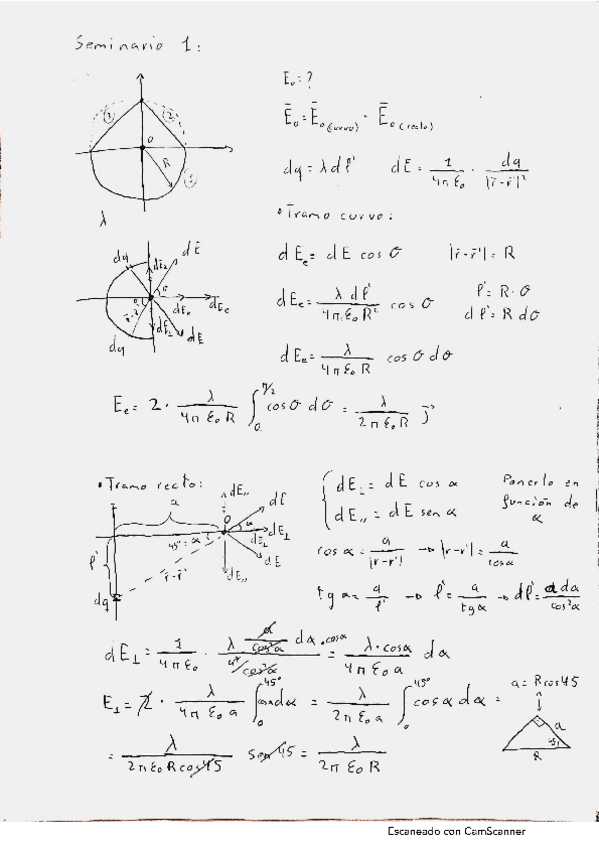 Seminario 1:
E₀ = ?
Ē₀ = Ē₀(curvo) - Ē₀(recto)
① ②
O
R
λ
dq = λ dl' dE = 1/(4π ε₀) · dq/|r̄-r̄'|²
• Tramo curvo:
dE_e = dE cos θ |r̄-r̄'| = R
dE_e = λ dl'/(4π ε₀ R²) cos θ l' = R · θ
dl' = R dθ
dE_e = λ/(4π ε₀ R) cos θ dθ
dq dE̅
dE_e
dq dE
E_e = 2 · λ/(4π ε₀ R) ∫₀^{π/2} cos θ dθ = λ/(2π ε₀ R) j⃗
• Tramo recto:
a
dE,, dE
O α dE⊥
45° = α
l' r̄-r̄' dE
dq dE,,
dE⊥ = dE cos α Ponerlo en
dE,, = dE sen α función de
α
cos α = a/|r-r'| → |r-r'| = a/cos α
tg α = a/l' → l' = a/tg α → dl' = a dα/cos²α
dE⊥ = 1/(4π ε₀) · λ a/cos²α dα · cos α / a²/cos²α = λ · cos α/(4π ε₀ a) dα
E⊥ = 2 · λ/(4π ε₀ a) ∫₀^{45°} cos α dα = λ/(2π ε₀ a) ∫₀^{45°} cos α dα =
a = R cos 45
a
45
R
= λ/(2π ε₀ R cos 45) sen 45 = λ/(2π ε₀ R)
Escaneado con CamScanner